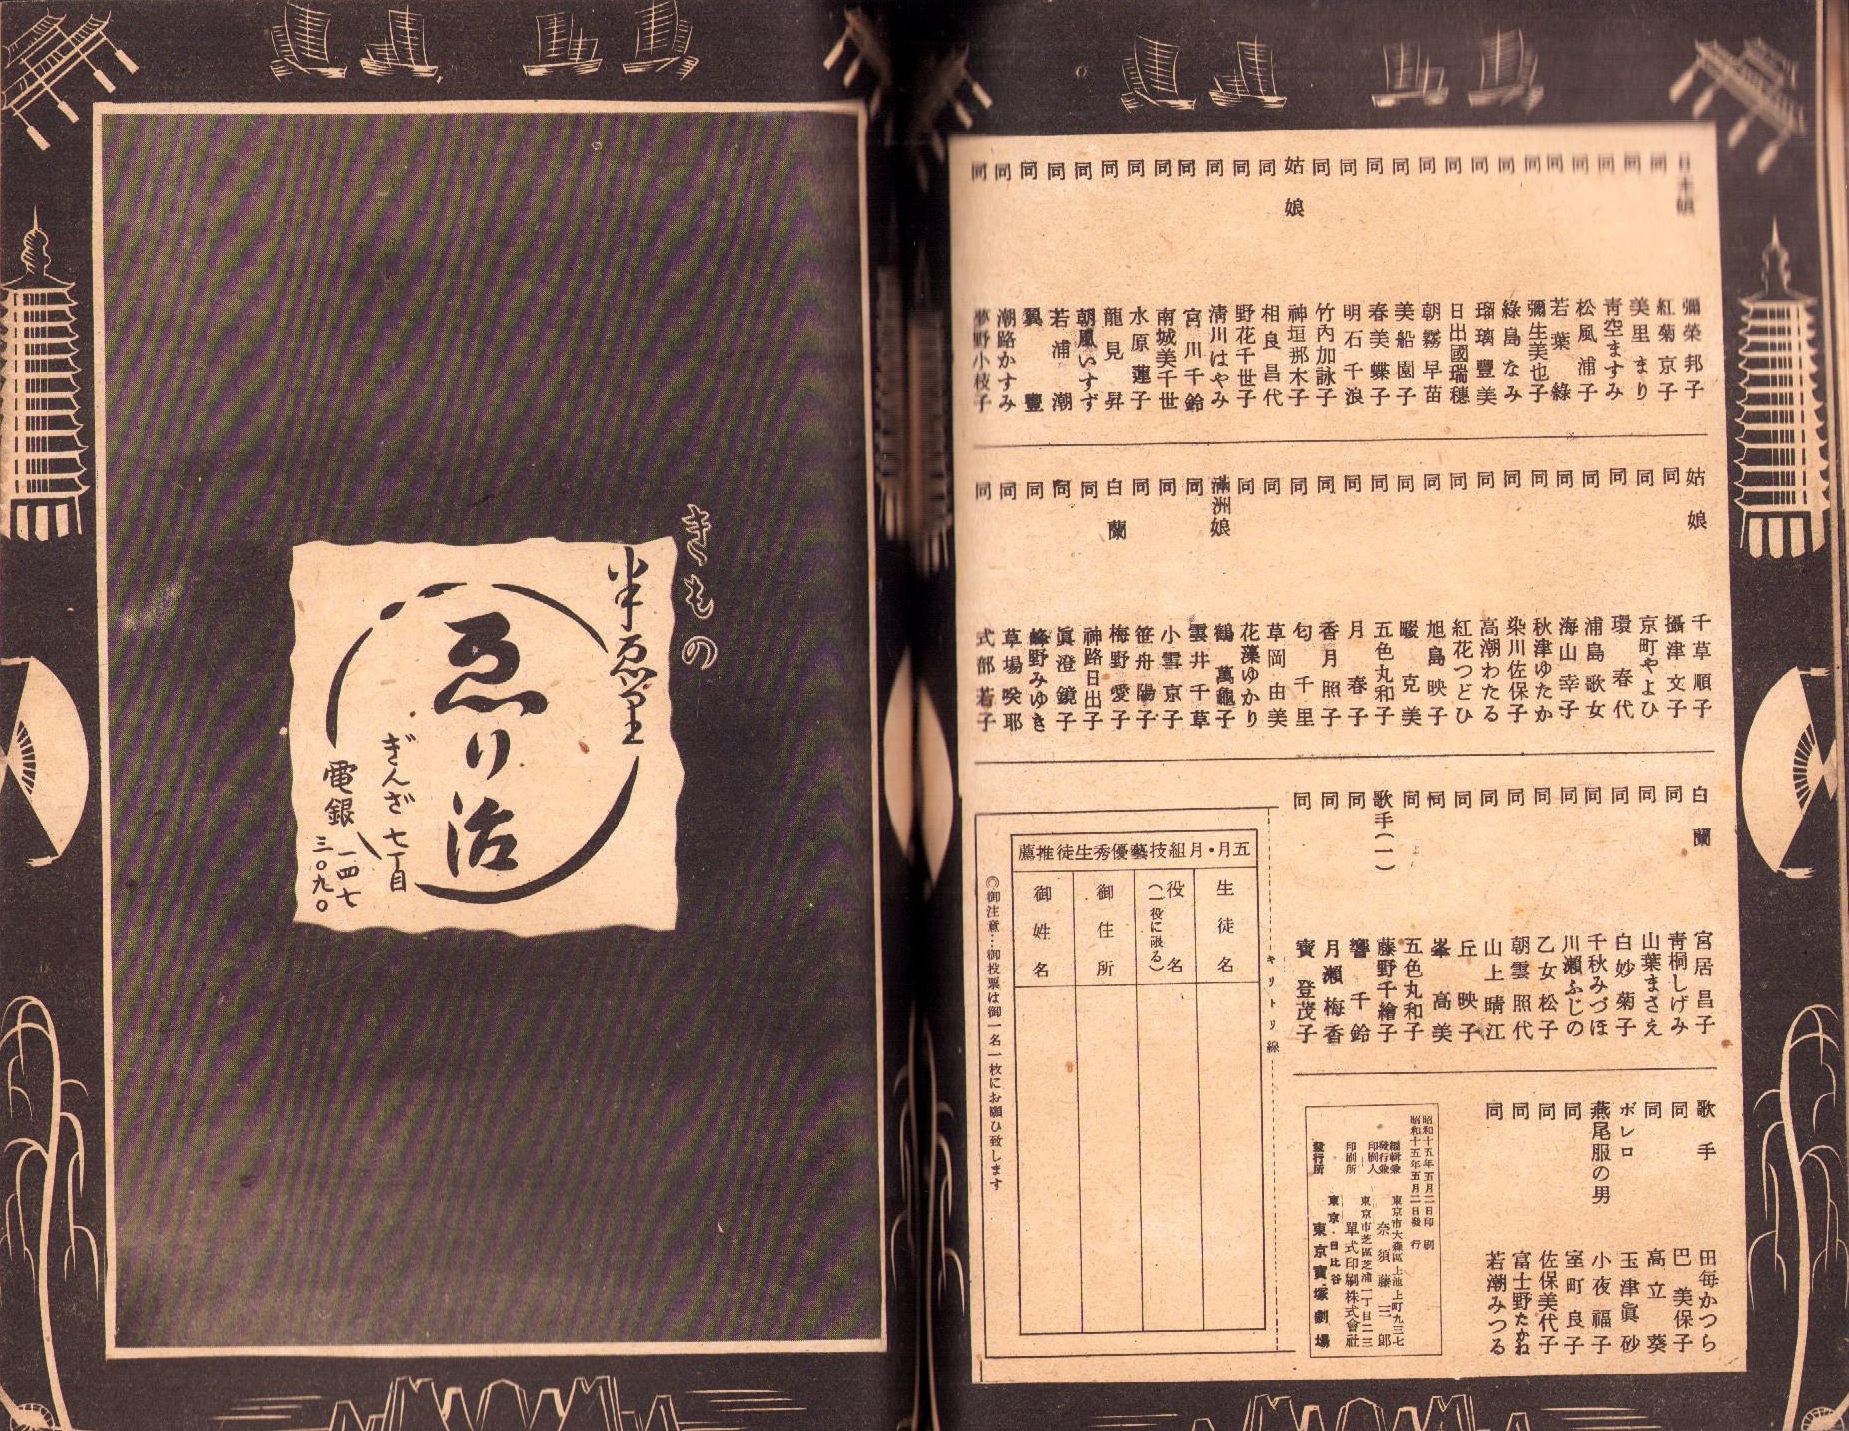 日本娘 彌榮邦子
同 紅菊京子
同 美里まり
同 青空ますみ
同 松風浦子
同 若葉綠
同 彌生美也子
同 綠島なみ
同 瑠璃豐美
同 日出國瑞穗
同 朝霧早苗
同 美船園子
同 春美蝶子
同 明石千浪
同 竹內加詠子
姑娘 神垣那木子
同 相良昌代
同 野花千世子
同 淸川はやみ
同 宮川千鈴
同 南城美千世
同 水原蓮子
同 龍見昇
同 朝風いすず
同 若浦潮
同 翼豐
同 潮路かすみ
同 夢野小枝子
姑娘 千草順子
同 攝津文子
同 京町やよひ
同 環春代
同 浦島歌女
同 海山幸子
同 秋津ゆたか
同 染川佐保子
同 高潮わたる
同 紅花つどひ
同 旭島映子
同 暖克美
同 五色丸和子
同 月春子
同 香月照子
同 匂千里
同 草岡由美
同 花藻ゆかり
滿洲娘 鶴萬龜子
同 雲井千草
同 小雲京子
同 笹舟陽子
白蘭 梅野愛子
同 神路日出子
同 眞澄鏡子
同 峰野みゆき
同 草場咲耶
同 式部若子
白蘭 宮居昌子
同 靑桐しげみ
同 山葉まさえ
同 白妙菊子
同 千秋みづほ
同 川瀨ふじの
同 乙女松子
同 朝雲照代
同 山上晴江
同 丘映子
同 峯高美
同 五色丸和子
歌手(一) 藤野千繪子
同 響千鈴
同 月瀨梅香
同 寳登茂子
歌手 田每かつら
同 巴美保子
同 高立葵
ボレロ 玉津眞砂
燕尾服の男 小夜福子
同 室町良子
同 佐保美代子
同 富士野たかね
同 若潮みつる
昭和十五年五月二日印刷
昭和十五年五月二日發行
東京市大森區上池上町九三七
編輯兼發行兼印刷人 奈須藤三郎
東京市芝區芝浦一丁目二三
印刷所 單式印刷株式會社
東京・日比谷
發行所 東京寶塚劇場
キリトリ線
五月・月組技藝優秀生徒推薦
生徒名
役名
(一役に限る)
御住所
御姓名
◎御注意…御投票は御一名一枚にお願ひ致します
きもの
半ゑ里
ゑり治
ぎんざ七丁目
電銀
一四七
三〇九〇